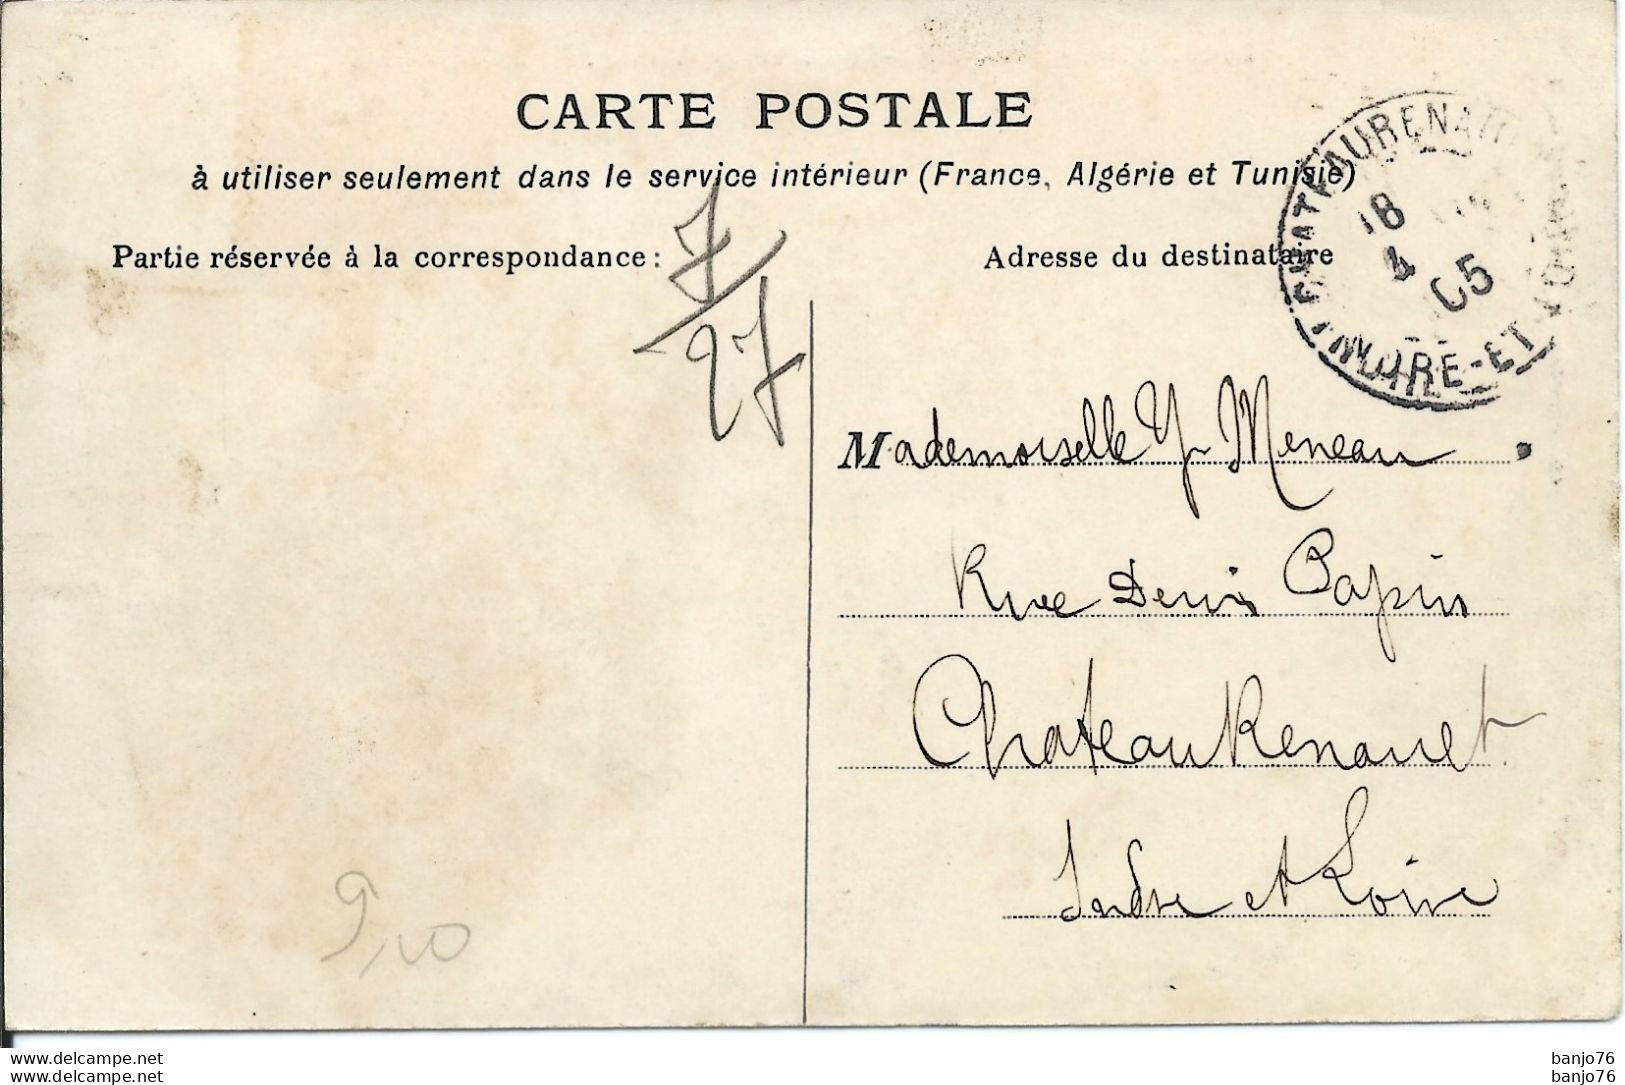 CARTE POSTALE
à utiliser seulement dans le service intérieur (France, Algérie et Tunisie)
Partie réservée à la correspondance :
Adresse du destinataire
CHATEAURENAULT
18
4 05
INDRE-ET-LOIRE
7/27
Mademoiselle Y Meneau
Rue Denis Papin
Chateau Renault
Indre et Loire
9,00
www.delcampe.net
www.delcampe.net
banjo76
banjo76